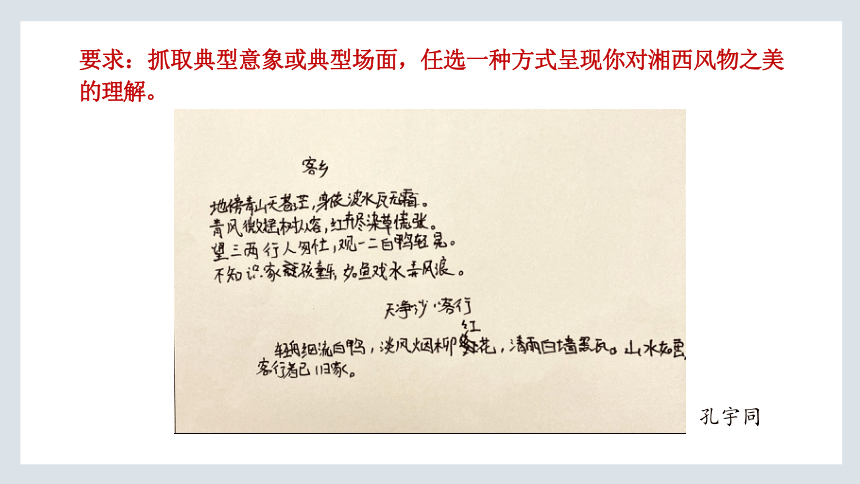 要求：抓取典型意象或典型场面，任选一种方式呈现你对湘西风物之美
的理解。
客乡
地傍青山天苍茫，身依波水瓦无霜。
青风微起树从容，红卉尽染草
望三两行人匆忙，观一二白鸭轻晃。
不知识家孩童乐 如鱼戏水弄风浪。
天净沙·客行
红
轻舟细流白鸭，淡风烟柳 花，清雨白墙黑瓦。山水如画
客行者已归家。
孔宇同